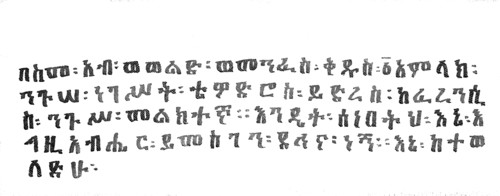 በስመ፡አብ፡ወወልድ፡ወመንፈስ፡ቅዱስ፡፩አምላክ፡
ንጉሠ፡ነገሥት፡ቴዎድሮስ፡ይድረስ፡ከፈረንሲ
ስ፡ንጉሥ፡መልክተኛ፡፡እንዴት፡ሰነበትህ፡እኔ፡እ
ግዚአብሔር፡ይመስገን፡ደኅና፡ነኝ፡፡እኔ፡ከተወ
ለድሁ፡